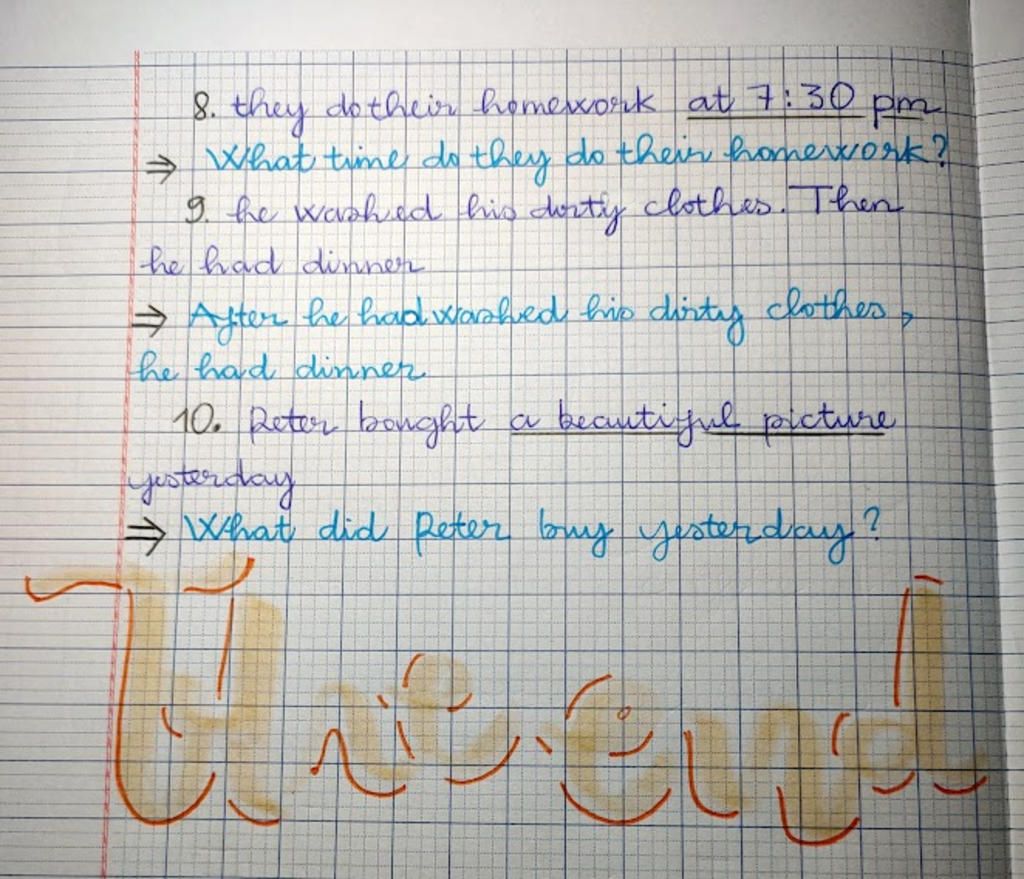 8. they do their homework at 7:30 pm
⇒ What time do they do their homework?
9. he washed his dirty clothes. Then
he had dinner
⇒ After he had washed his dirty clothes,
he had dinner
10. Peter bought a beautiful picture
yesterday
⇒ What did Peter buy yesterday?
The end